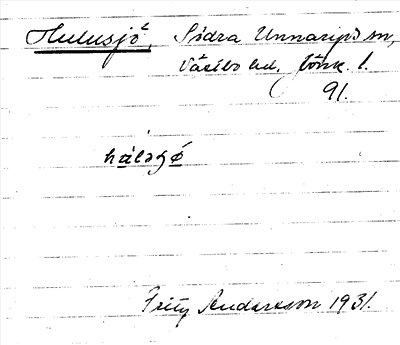 Hulusjö, Södra Unnaryds sn,
Västbo hd. Jönk. l.
91.
hálsʒö
Fritz Andersson 1931.